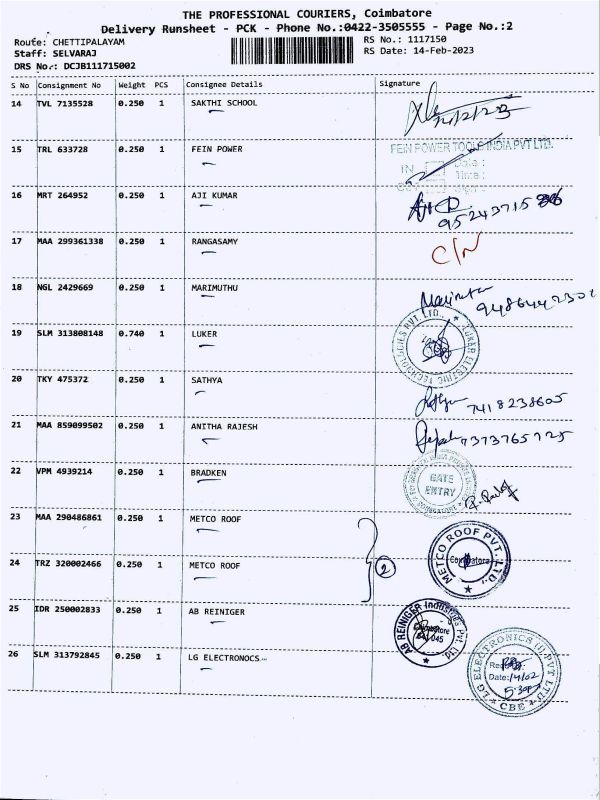 THE PROFESSIONAL COURIERS, Coimbatore
Delivery Runsheet - PCK - Phone No.:0422-3505555 - Page No.:2
Route: CHETTIPALAYAM RS No.: 1117150
Staff: SELVARAJ RS Date: 14-Feb-2023
DRS No.: DCJB111715002
S No Consignment No Weight PCS Consignee Details Signature
14 TVL 7135528 0.250 1 SAKTHI SCHOOL 14/2/23
15 TRL 633728 0.250 1 FEIN POWER
FEIN POWER TOOLS INDIA PVT LTD.
IN Date :
OUT Time :
Sign :
16 MRT 264952 0.250 1 AJI KUMAR
17 MAA 299361338 0.250 1 RANGASAMY C/N
18 NGL 2429669 0.250 1 MARIMUTHU
19 SLM 313808148 0.740 1 LUKER
LUKER ELECTRIC TECHNOLOGIES PVT. LTD.
20 TKY 475372 0.250 1 SATHYA 7418238605
21 MAA 859099502 0.250 1 ANITHA RAJESH 7373765725
22 VPM 4939214 0.250 1 BRADKEN
GATE
ENTRY
23 MAA 290486861 0.250 1 METCO ROOF
METCO ROOF PVT. LTD.
Coimbatore
2
24 TRZ 320002466 0.250 1 METCO ROOF
25 IDR 250002833 0.250 1 AB REINIGER
AB REINIGER Industries Pvt Ltd
Coimbatore
641 045
26 SLM 313792845 0.250 1 LG ELECTRONOCS...
LG ELECTRONICS (I) PVT LTD
Date: 14/02
5.30
CBE